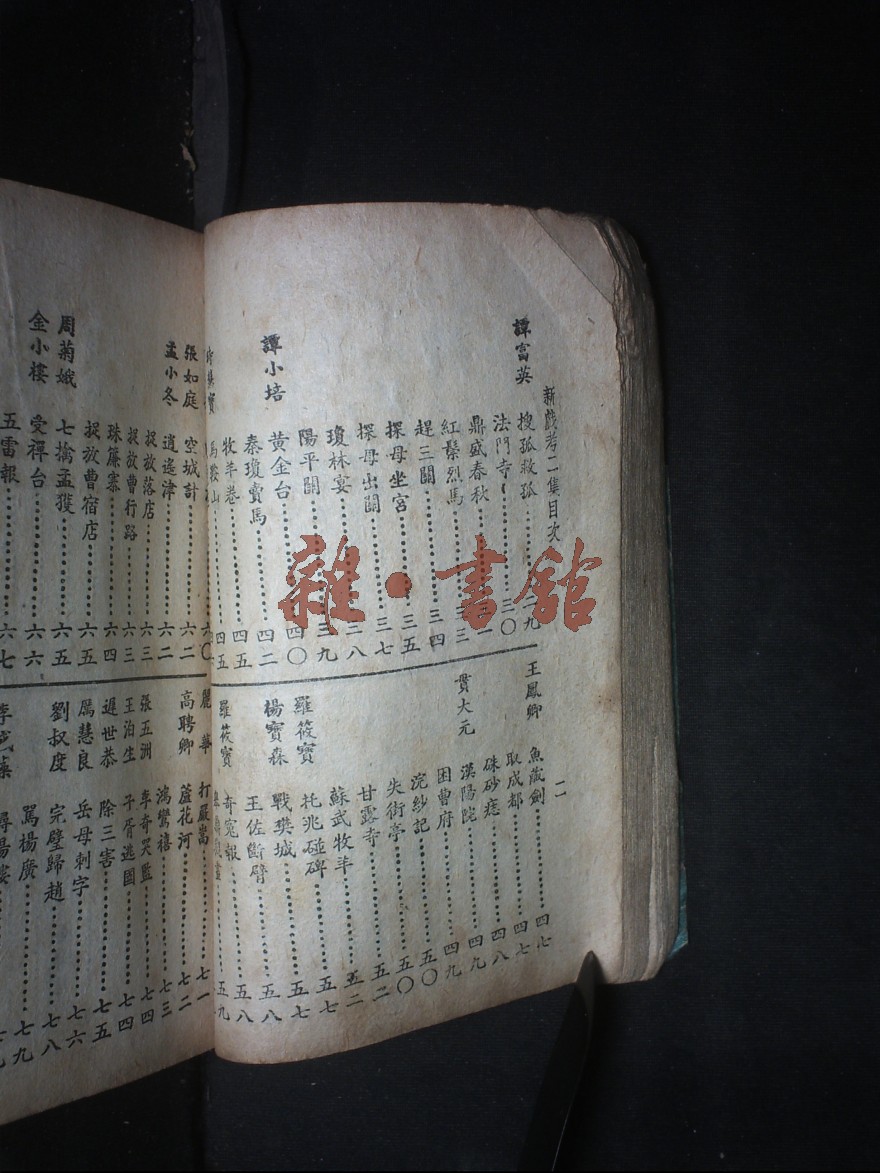 新戲考二集目次
二
譚富英
搜孤救孤 二九
法門寺 三〇
鼎盛春秋
紅鬃烈馬 三三
趕三關 三四
探母坐宮 三五
探母出關 三七
瓊林宴 三八
陽平關 三九
譚小培
黃金台 四〇
秦瓊賣馬 四二
牧羊卷 四五
馬鞍山 四五
王鳳卿
魚藏劍 四七
取成都 四七
硃砂痣 四八
貫大元
漢陽院 四九
困曹府 四九
浣紗記 五〇
失街亭 五〇
甘露寺 五二
蘇武牧羊 五二
羅筱寶
托兆碰碑 五七
楊寶森
戰樊城 五七
王佐斷臂 五八
羅筱寶
奇冤報 五九
張如庭
空城計 六二
孟小冬
逍遙津 六二
捉放落店 六三
捉放曹行路 六三
珠簾寨 六四
捉放曹宿店 六五
周菊娥
七擒孟獲 六五
金小樓
受禪台 六六
五雷報 六七
麗華
打嚴嵩 七一
高聘卿
蘆花河 七二
鴻鸞禧 七三
張五洲
李奇哭監 七四
王泊生
子胥逃國 七四
遲世恭
除三害 七五
厲慧良
岳母刺字 七六
劉叔度
完璧歸趙 七八
罵楊廣 七九
潯陽樓
雜·書館